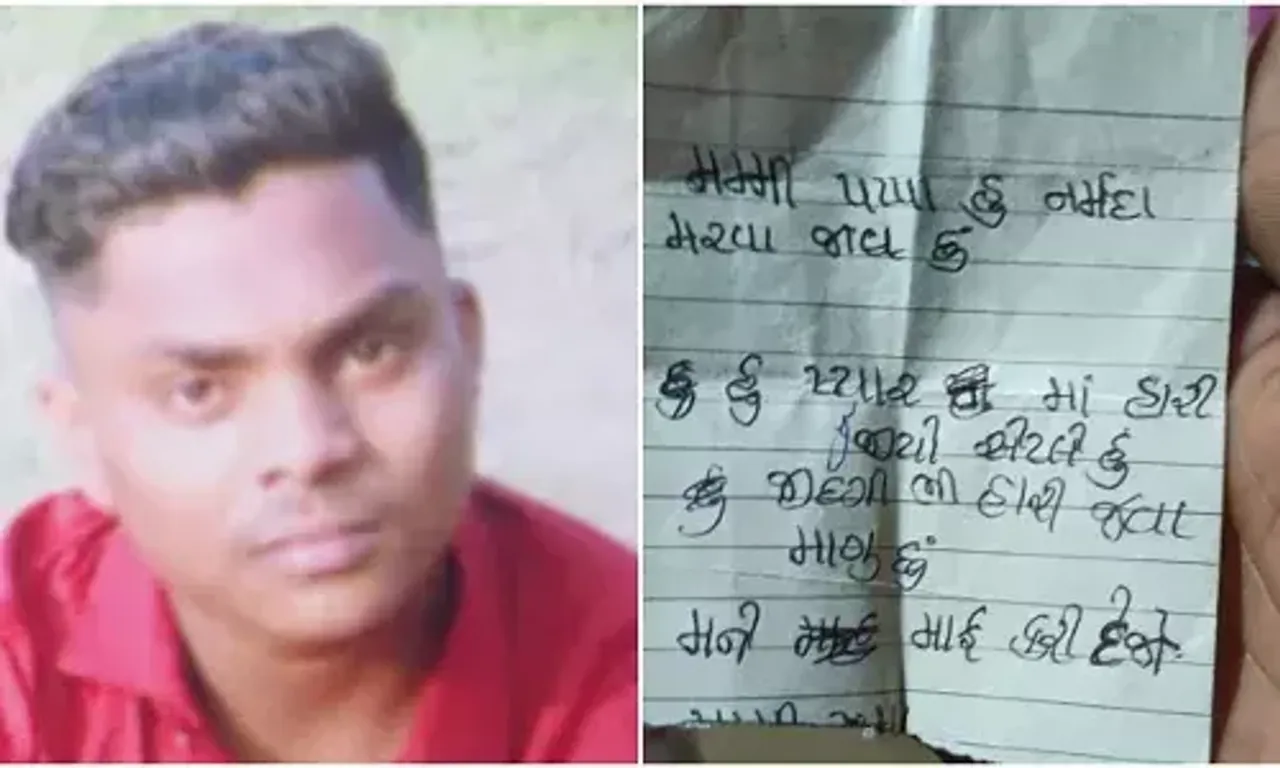 મમ્મી પપ્પા હું નર્મદા
મરવા જાવ છું
હું પ્યાર માં હારી
ગયો એટલે હું
જીદગી ભી હારી જવા
માગુ છું
મને માફ કરી દેજો